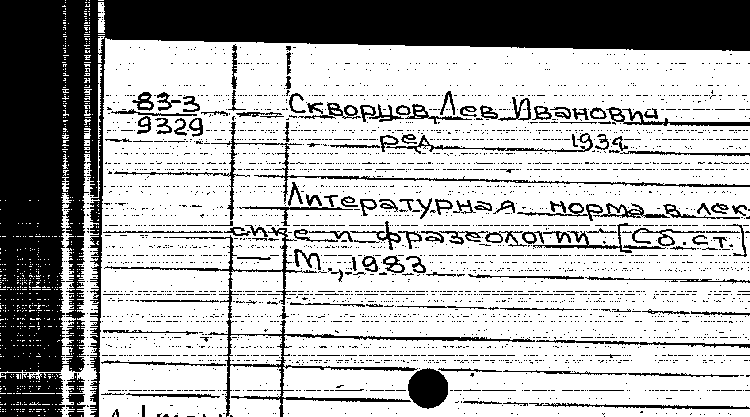 83-3
9329
Скворцов, Лев Иванович,
ред. 1934
Литературная норма в лек-
сике и фразеологии: [Сб. ст.]
— М., 1983